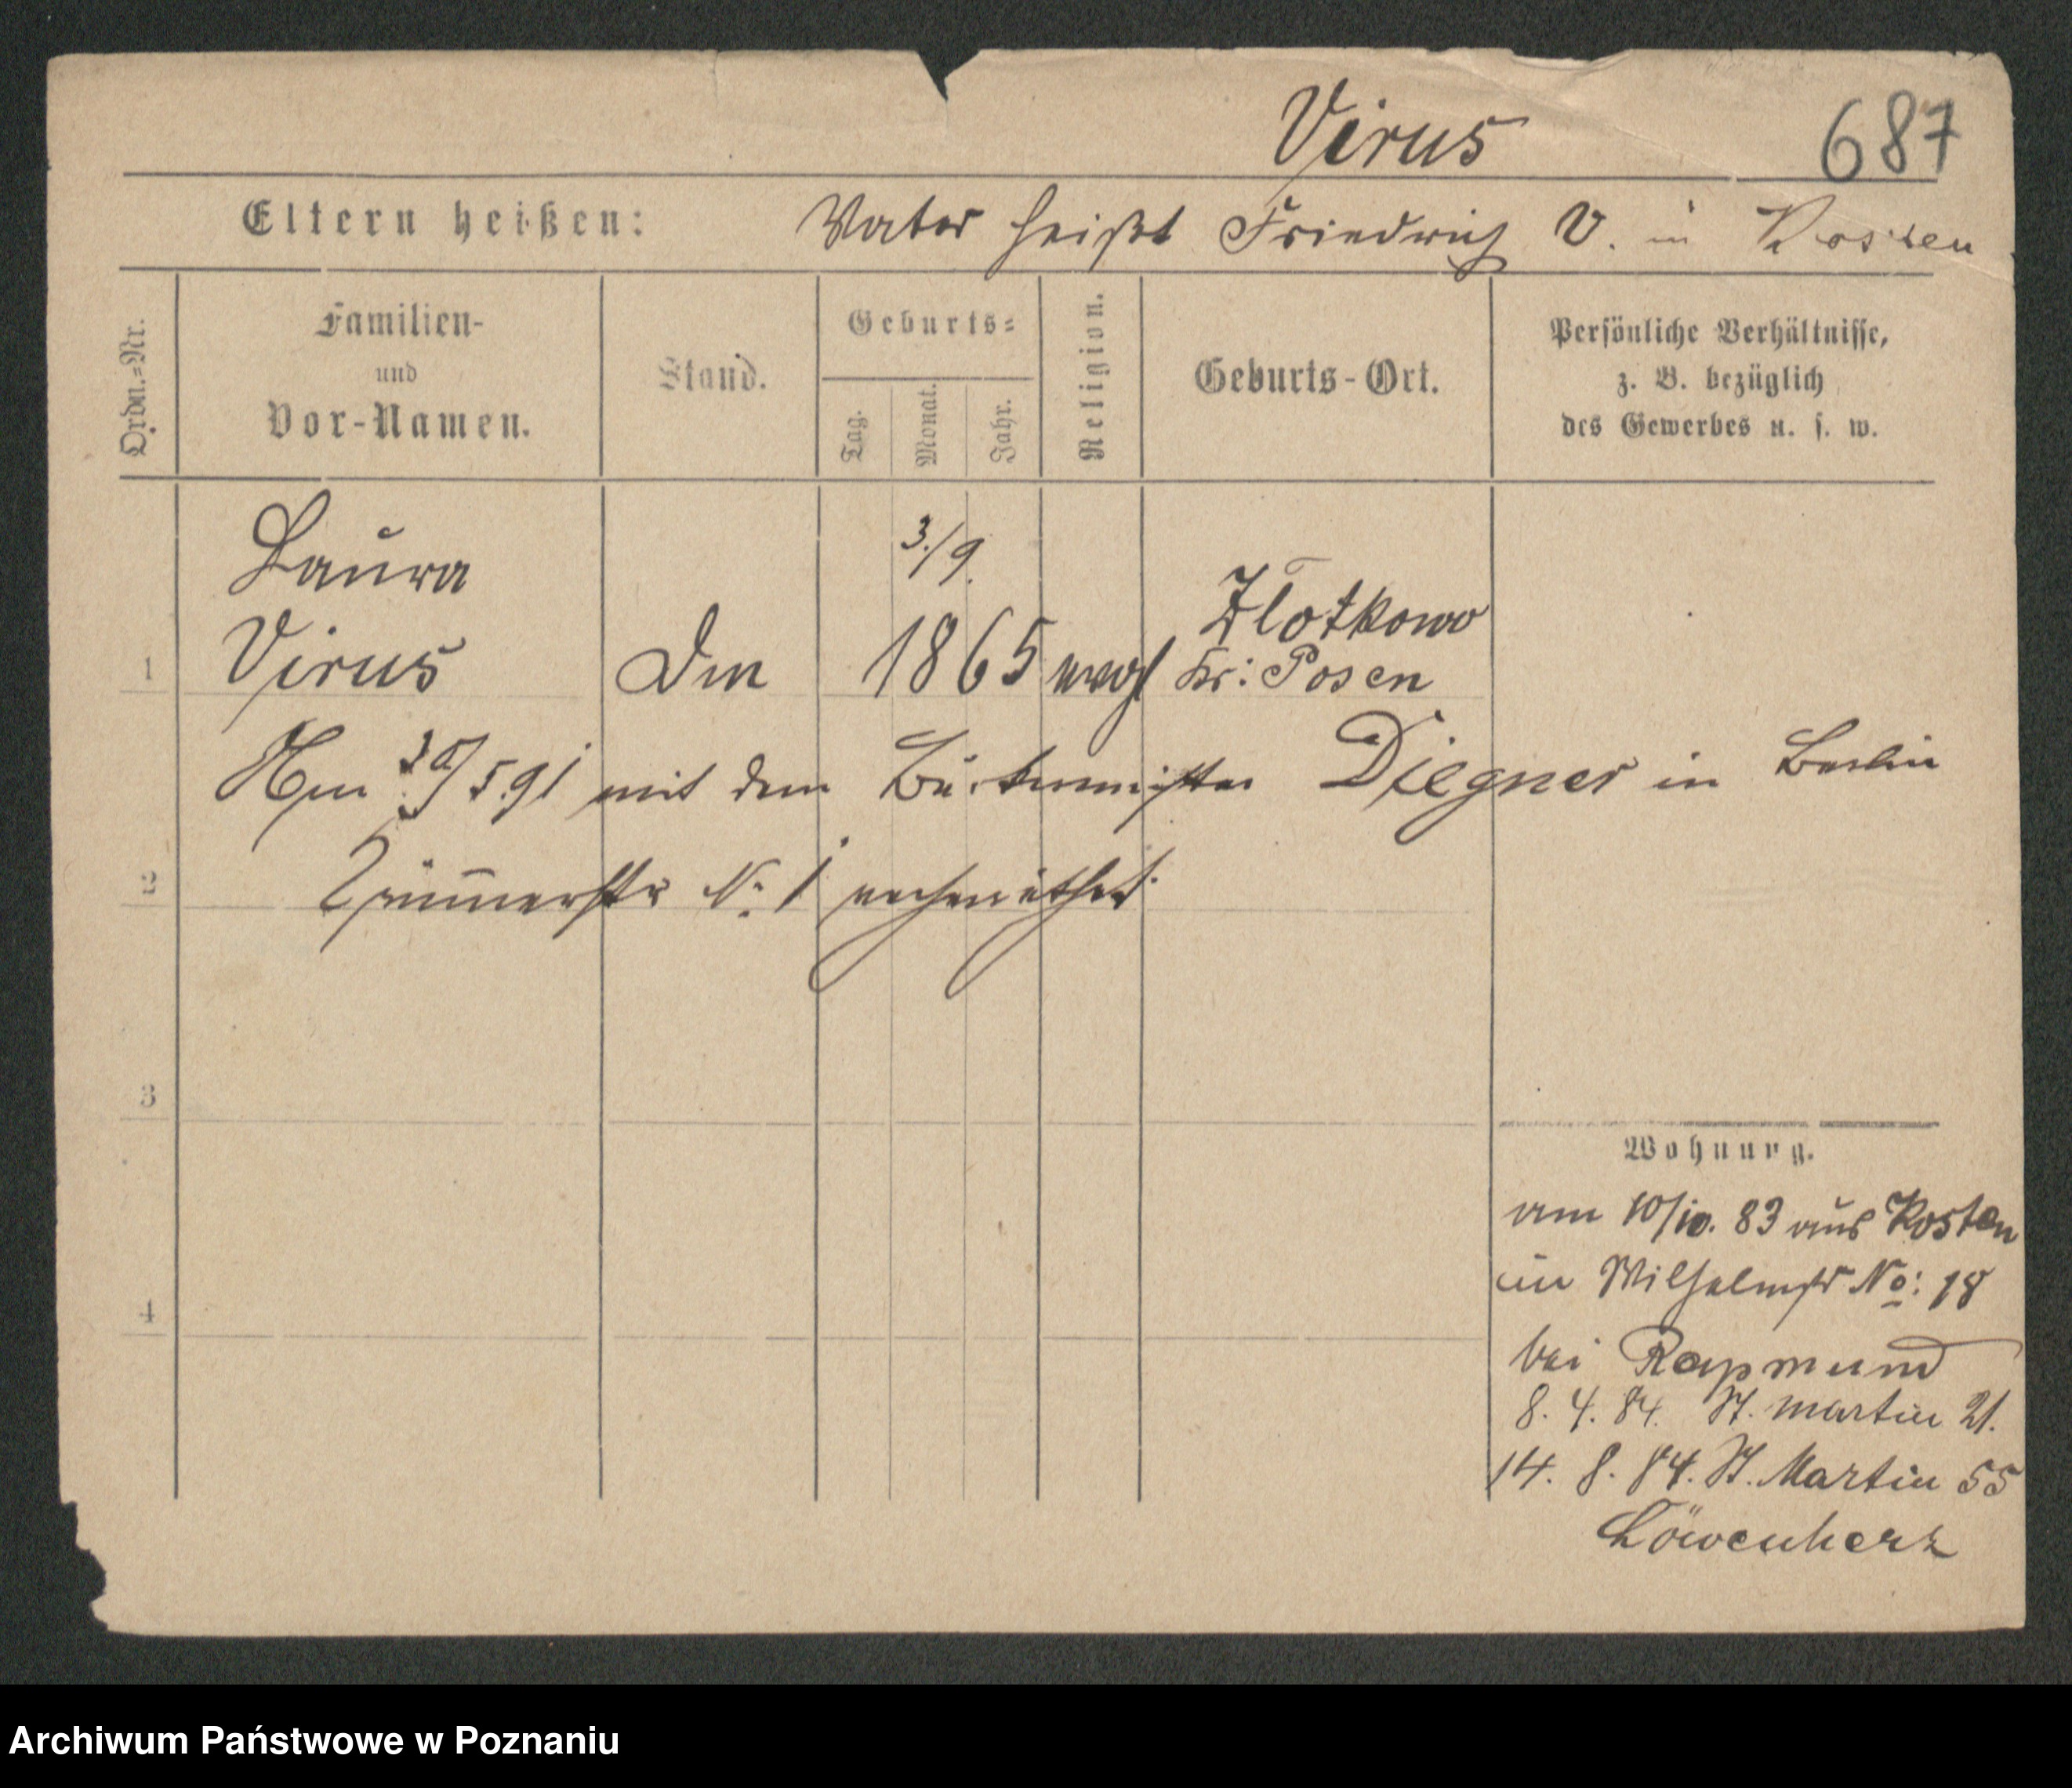 Virus 687
Eltern heißen: Vater heißt Friedrich V. in Kosten
Ordn.=Nr.
Familien-
und
Vor-Namen.
Stand.
Geburts=
Tag.
Monat.
Jahr.
Religion.
Geburts-Ort.
Persönliche Verhältnisse,
z. B. bezüglich
des Gewerbes u. s. w.
Laura
3./9.
Zlotkowo
1 Virus 1865 evgl Kr: Posen
5.91 mit dem Diegner in Berlin
2 Zimmerstr No 1
3
Wohnung.
am 10/10. 83 aus Kosten
in Wilhelmstr No: 18
4
bei Rapmund
8. 4. 84. St. Martin 21.
14. 8. 84. St. Martin 55
Löwenherz
Archiwum Państwowe w Poznaniu